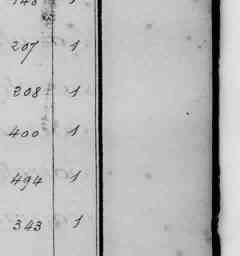 207 1
208 1
400 1
494 1
343 1